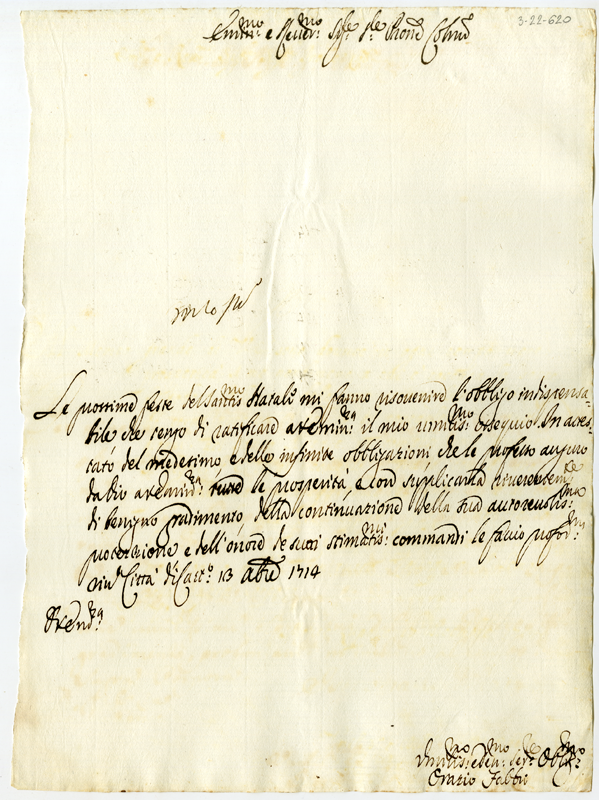 3-22-620
Emin:mo e Rever:mo Sig:re Sig:re Prone Colmo
Le prossime feste del Santis:mo Natale mi fanno risovenire l'obbligo indispensa-
bile che tengo di ratificare a V Emin:za il mio umilis:mo ossequio. In ates-
tato del medesimo e delle infinite obbligazioni che le professo auguro
da Dio a V Emin:za tutte le prosperità e con suplicarla riverentem:te
di benigno gradimento della continuazione della sua autorevolis:ma
protezzione e dell'onore de suoi stimatis:mi commandi le faccio profon:ma
Città di Cast:o 13 Xbre 1714
Orazio Fabbri